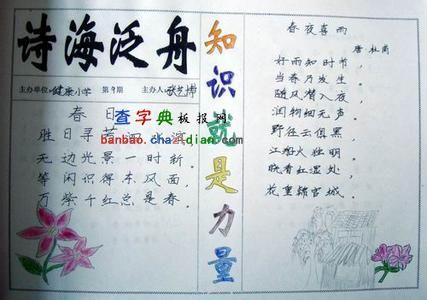 诗海泛舟
主办单位:健康小学 第9期 主办人:
春日
胜日寻芳泗水滨,
无边光景一时新。
等闲识得东风面,
万紫千红总是春。
查字典板报网
banbao.chazidian.com
知识就是力量
春夜喜雨
唐·杜甫
好雨知时节,
当春乃发生。
随风潜入夜,
润物细无声。
野径云俱黑,
江船火独明。
晓看红湿处,
花重锦官城。